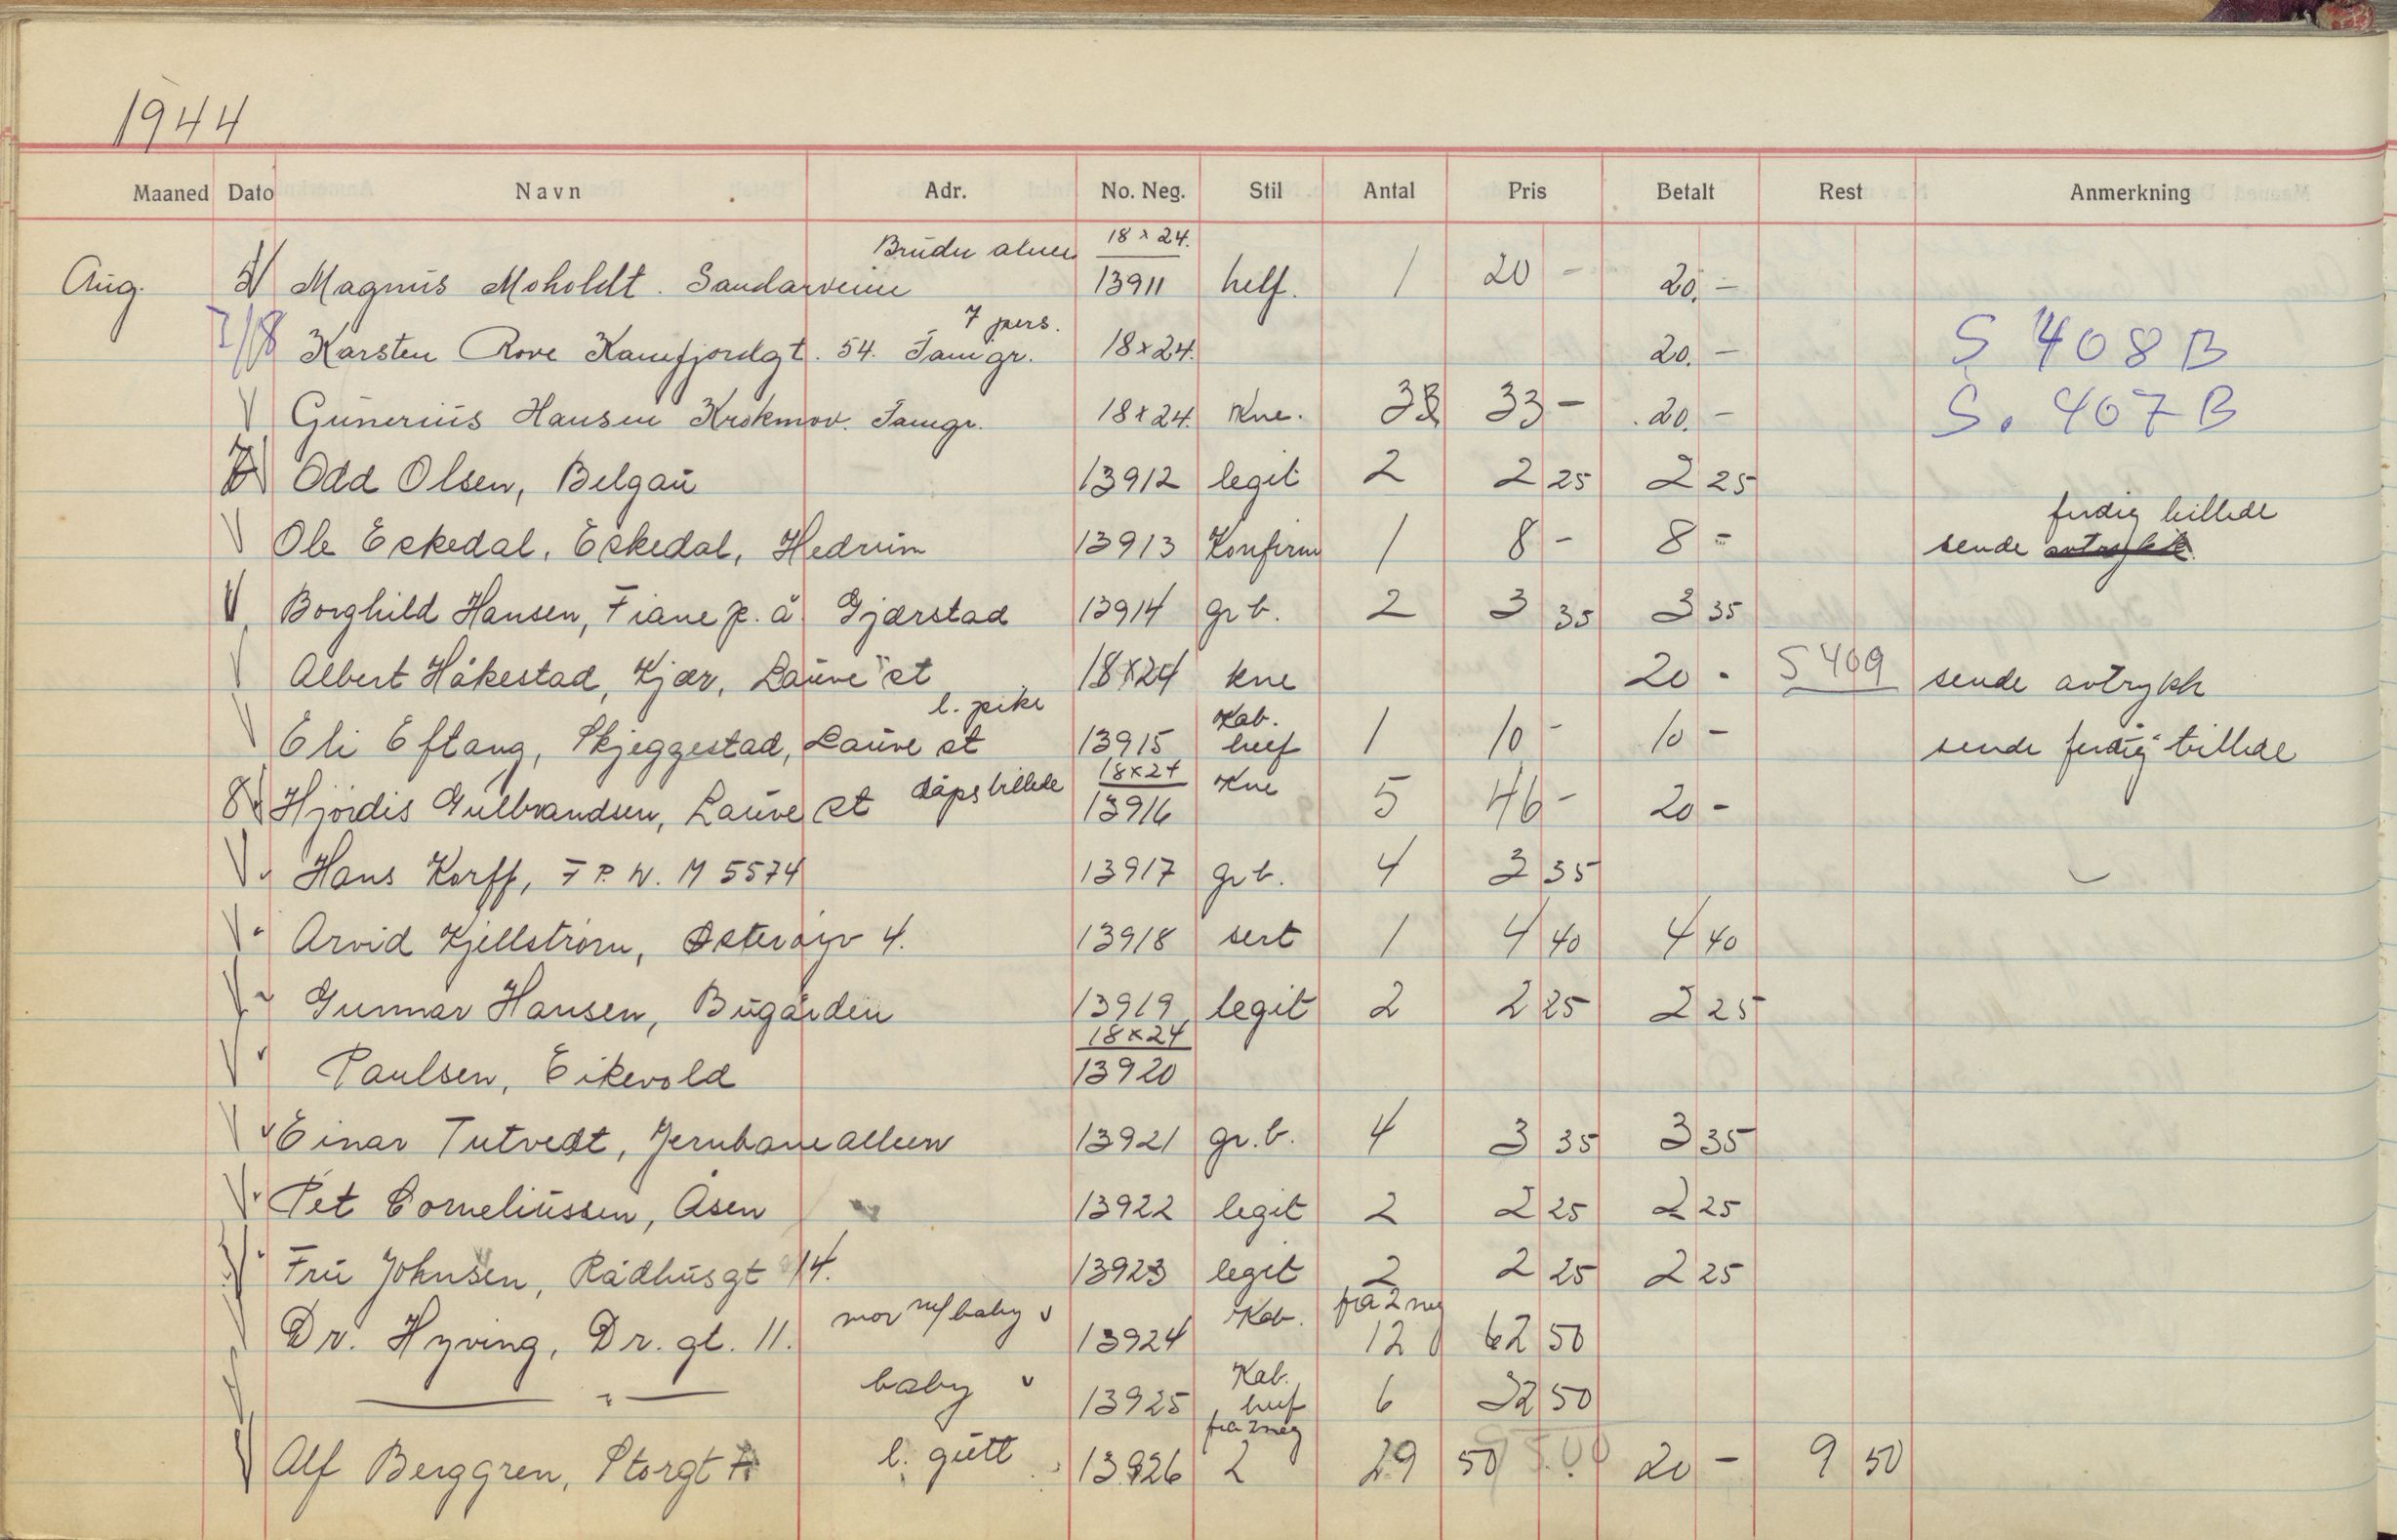 1944
Maaned Dato Navn Adr. No. Neg. Stil Antal Pris Betalt Rest Anmerkning
Brude alene 18 x 24.
Aug. Magnus Moholdt. Sandarveien 13911 helf. 1 20 - 20. -
7 pers.
7/8 Karsten Rove Kamfjordgt. 54. Famgr. 18x24. 20. - S 408 B
Gunerius Hansen Krokmov. Famgr. 18x24. Kne. 33 - 20. - S. 407 B
7 Odd Olsen, Belgau 13912 legit 2 2 25 2 25
ferdig billede
Ole Eskedal, Eskedal, Hedrum 13913 Konfirm 1 8 - 8 - sende avtrykk
Borghild Hansen, Fiane p. å. Gjærstad 13914 gr b. 2 3 35 3 35
Albert Håkestad, Kjær, Lauve st 18x24 kne 20 - S 409 sende avtrykk
l. pike Kab.
Eli Eftang, Skjeggestad, Lauve st 13915 huf 1 10 - 10 - sende ferdig billede
dåpsbillede 18x24 Kne
8 Hjørdis Gulbrandsen, Lauve st 13916 5 46 - 20 -
Hans Korff, F P. W. M 5574 13917 gr b. 4 3 35
Arvid Kjellstrøm, Østerøyv 4. 13918 sert 1 4 40 4 40
Gunnar Hansen, Bugården 13919 legit 2 2 25 2 25
18x24
Paulsen, Eikevold 13920
Einar Tutvedt, Jernbanealleen 13921 gr. b. 4 3 35 3 35
Pet Corneliussen, Åsen 13922 legit 2 2 25 2 25
Fru Johnsen, Rådhusgt 14. 13923 legit 2 2 25 2 25
mor m/ baby v Kab. fra 2 neg
Dr. Hyving, Dr. gt. 11. 13924 12 62 50
Kab.
— " — baby v 13925 huf 6 32 50
fra 2 neg
Alf Berggren, Storgt l. gutt 13926 2 29 50 20 - 9 50